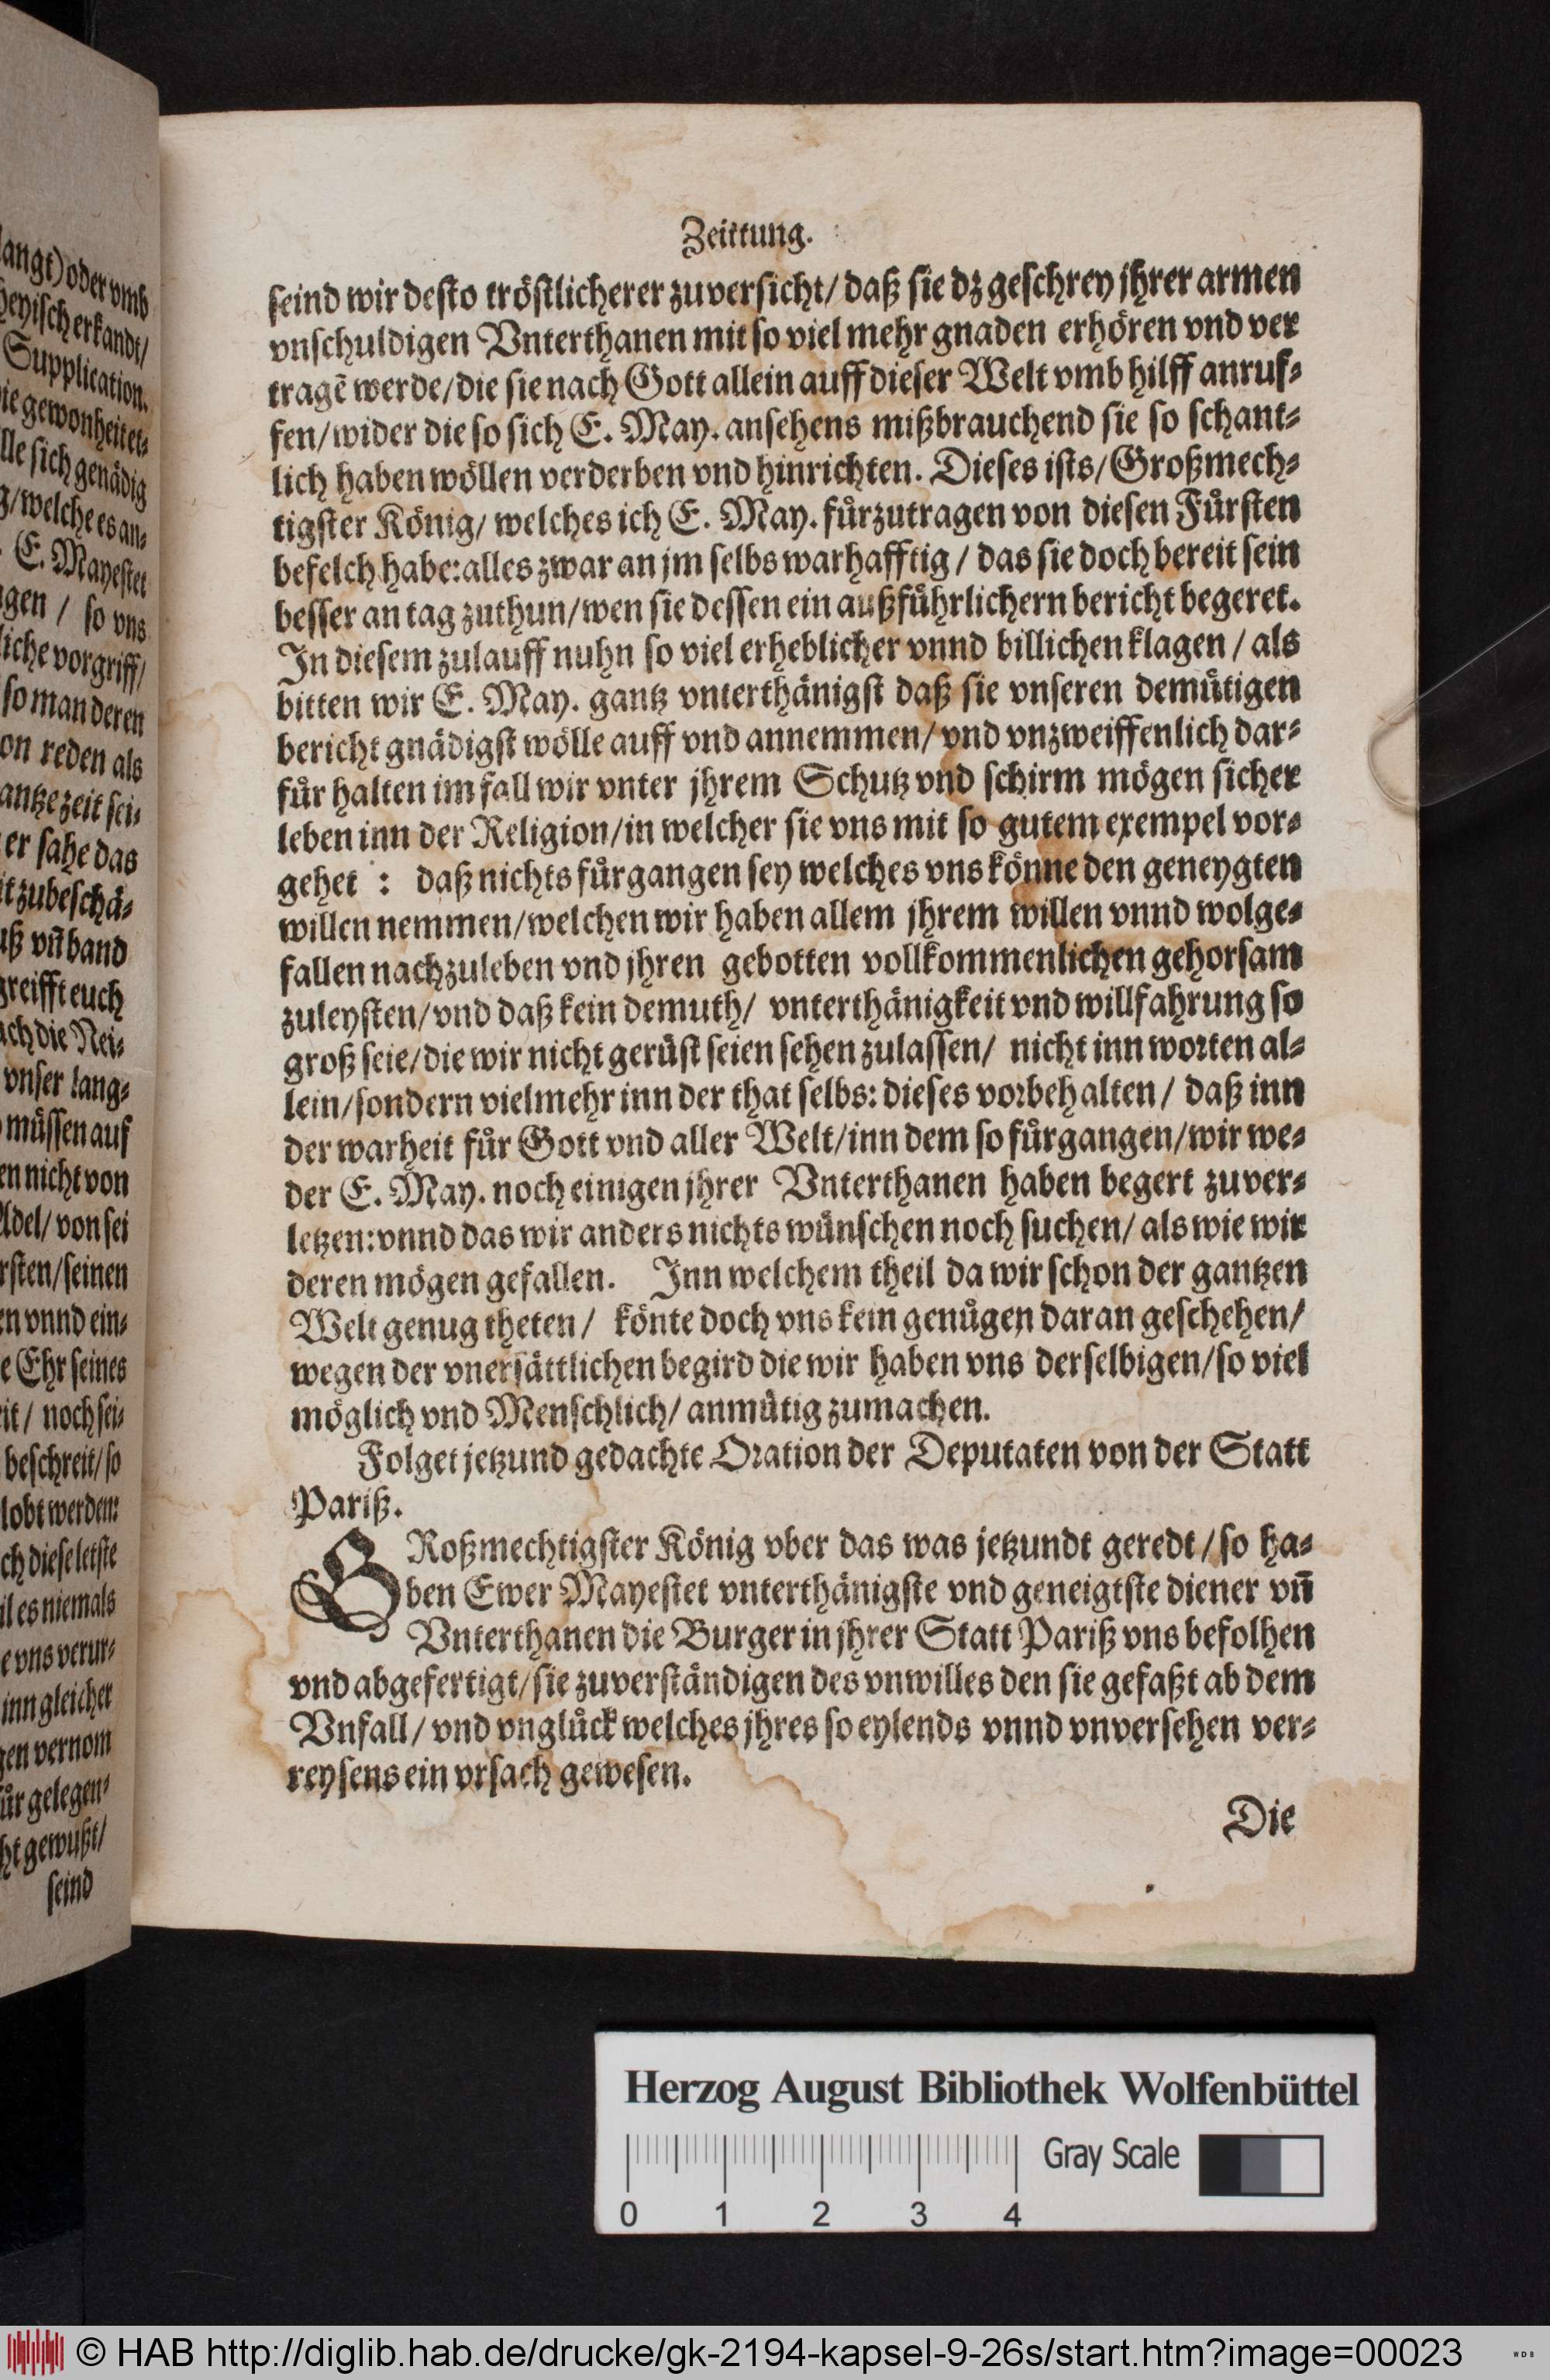 langt) oder vmb
heyisch erkandt/
Supplication.
ie gewonheit et⸗
lle sich genädig
g/welche es an⸗
E. Mayestet
gen / so vns
liche vorgriff/
so man deren
on reden als
antze zeit sei⸗
er sahe das
t zubeschä⸗
uß vñ band
greifft euch
ach die Nei⸗
vnser lang⸗
müssen auf
en nicht von
Adel/ von sei
rsten/seinen
en vnnd ein⸗
e Ehr seines
it / noch sei⸗
beschreit/so
lobt werden:
ch diese letste
il es niemals
e vns verur⸗
inn gleicher
gen vernom
für gelegen⸗
ht gewußt/
seind
Zeittung.
seind wir desto tröstlicherer zuversicht/ daß sie dz geschrey jhrer armen
vnschuldigen Vnterthanen mit so viel mehr gnaden erhören vnd ver
tragẽ werde/die sie nach Gott allein auff dieser Welt vmb hilff anruf⸗
fen/wider die so sich E. May. ansehens mißbrauchend sie so schant⸗
lich haben wöllen verderben vnd hinrichten. Dieses ists/Großmech⸗
tigster König/ welches ich E. May. fürzutragen von diesen Fürsten
befelch habe:alles zwar an jm selbs warhafftig / das sie doch bereit sein
besser an tag zuthun/wen sie dessen ein außführlichern bericht begeret.
In diesem zulauff nuhn so viel erheblicher vnnd billichen klagen / als
bitten wir E. May. gantz vnterthänigst daß sie vnseren demütigen
bericht gnädigst wölle auff vnd annemmen/ vnd vnzweiffenlich dar⸗
für halten im fall wir vnter jhrem Schutz vnd schirm mögen sicher
leben inn der Religion/in welcher sie vns mit so gutem exempel vor⸗
gehet : daß nichts fürgangen sey welches vns könne den geneygten
willen nemmen/welchen wir haben allem jhrem willen vnnd wolge⸗
fallen nachzuleben vnd jhren gebotten vollkommenlichen gehorsam
zuleysten/vnd daß kein demuth/ vnterthänigkeit vnd willfahrung so
groß seie/die wir nicht gerüst seien sehen zulassen/ nicht inn worten al⸗
lein/sondern vielmehr inn der that selbs: dieses vorbehalten / daß inn
der warheit für Gott vnd aller Welt/inn dem so fürgangen/wir we⸗
der E. May. noch einigen jhrer Vnterthanen haben begert zuver⸗
letzen:vnnd das wir anders nichts wünschen noch suchen/ als wie wir
deren mögen gefallen. Inn welchem theil da wir schon der gantzen
Welt genug theten / könte doch vns kein genügen daran geschehen/
wegen der vnersättlichen begird die wir haben vns derselbigen/so viel
möglich vnd Menschlich/ anmütig zumachen.
Folget jetzund gedachte Oration der Deputaten von der Statt
Pariß.
GRoßmechtigster König vber das was jetzundt geredt / so ha⸗
ben Ewer Mayestet vnterthänigste vnd geneigtste diener vñ
Vnterthanen die Burger in jhrer Statt Pariß vns befolhen
vnd abgefertigt/sie zuverständigen des vnwilles den sie gefaßt ab dem
Vnfall/ vnd vnglück welches jhres so eylends vnnd vnversehen ver⸗
reysens ein vrsach gewesen.
Die
Herzog August Bibliothek Wolfenbüttel
Gray Scale
0 1 2 3 4
© HAB http://diglib.hab.de/drucke/gk-2194-kapsel-9-26s/start.htm?image=00023